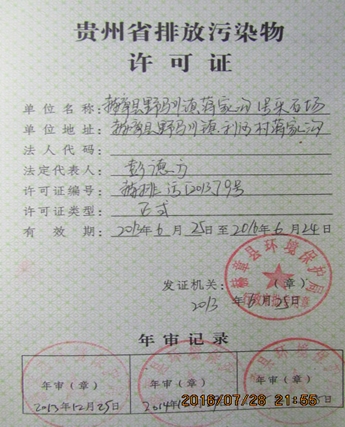 贵州省排放污染物
许可证
单位名称:赫章县野马川镇蒋家沟 采石场
单位地址:赫章县野马川镇 村蒋家沟
法人代码:
法定代表人:彭德方
许可证编号:赫排污[2013]79号
许可证类型:正式
有效期:2013年6月25日至2016年6月24日
赫章县环境保护局
发证机关:(章)
2013年6月25日
年审记录
年审(章) 年审(章)
2013年12月25日 2014
2016/07/28 21:55